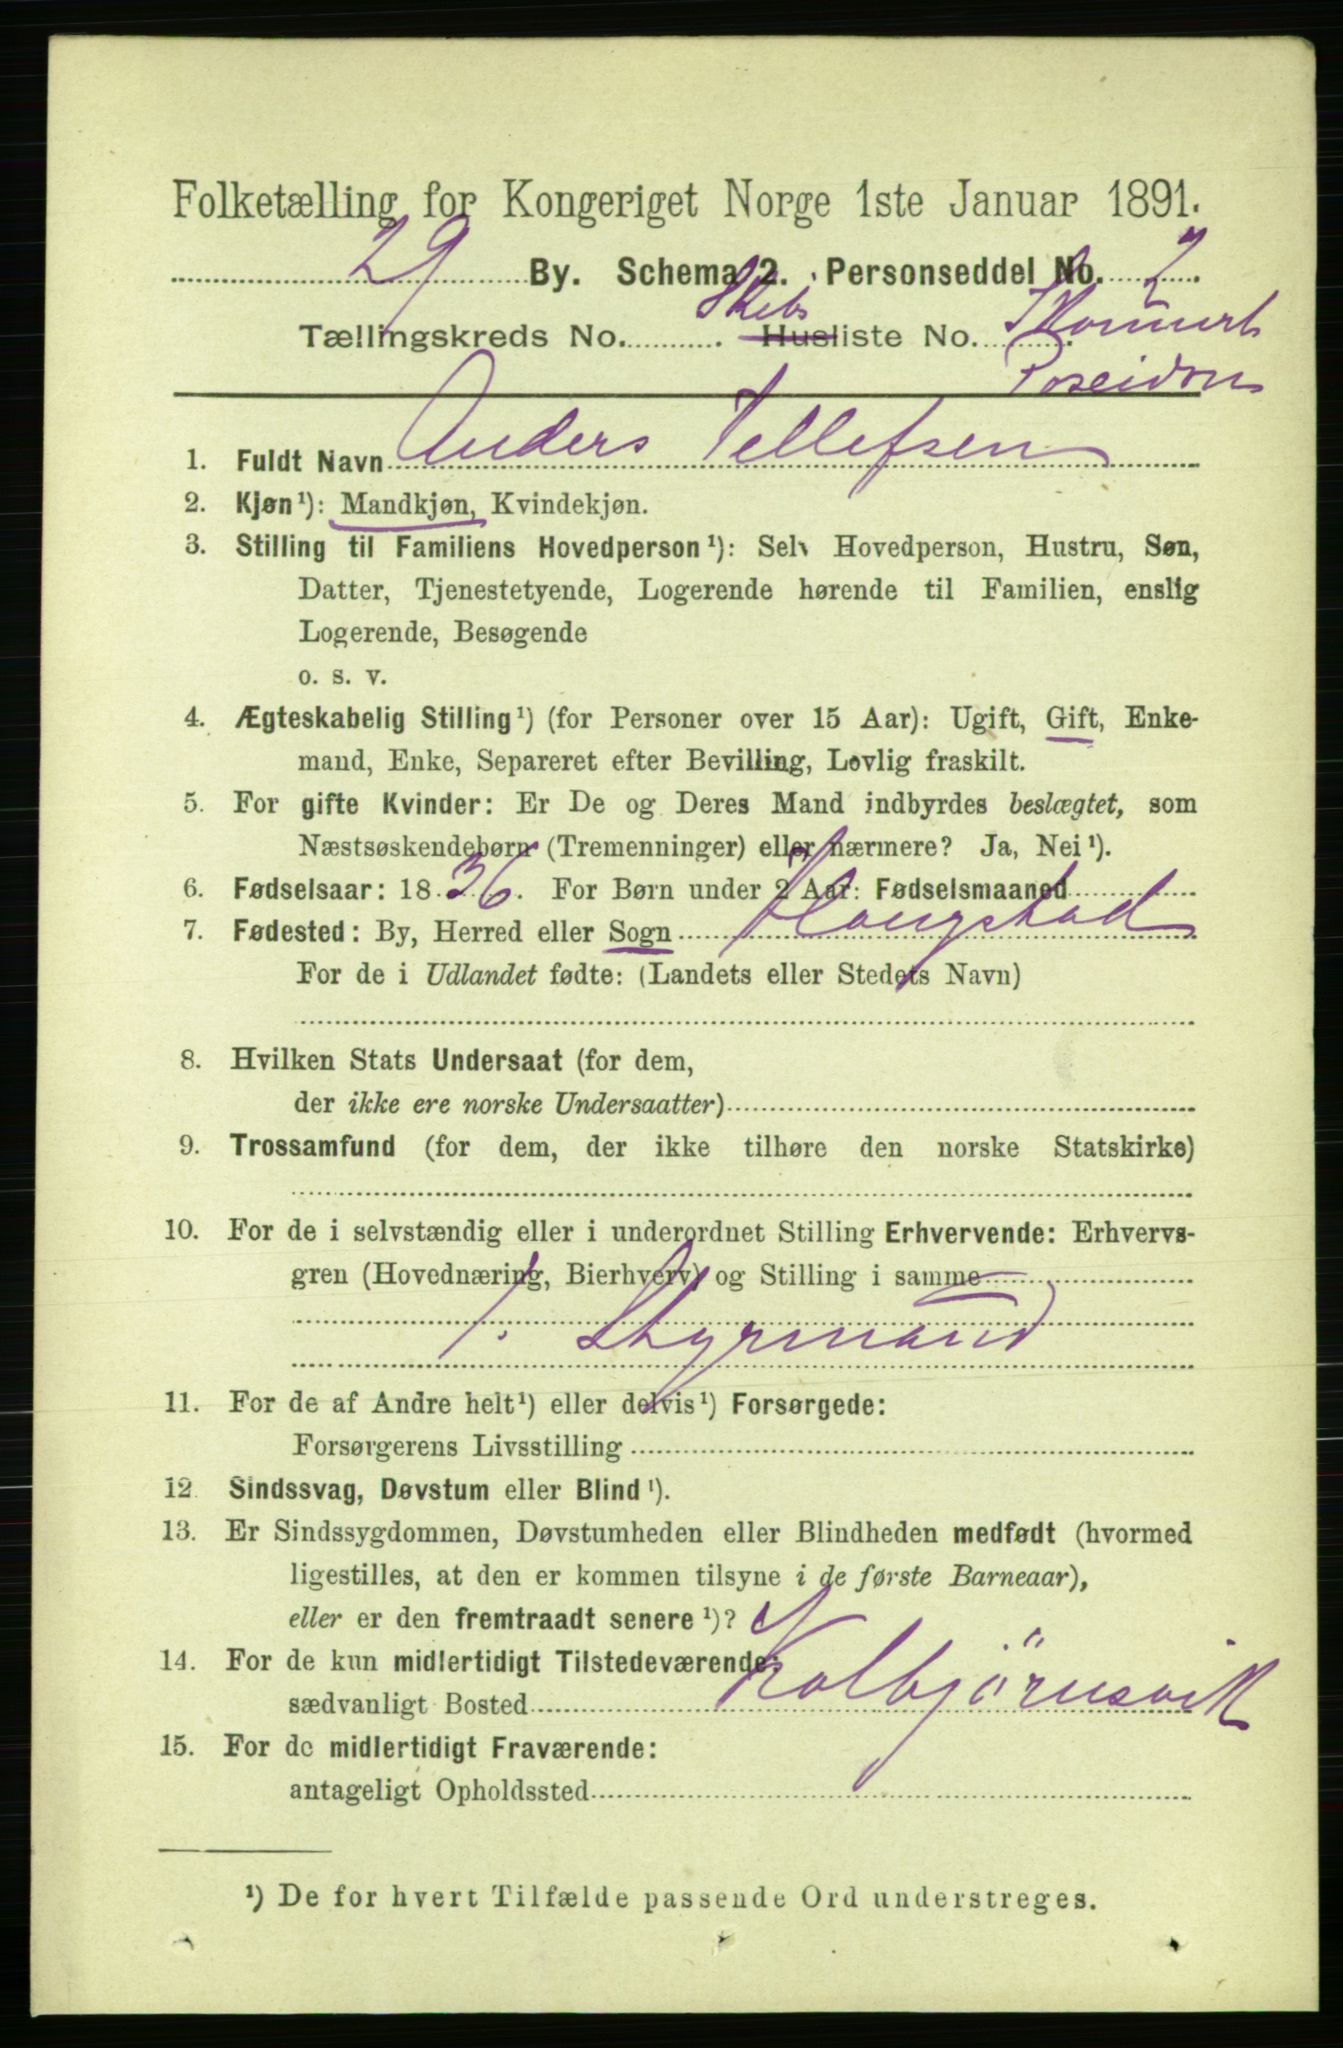 Folketælling for Kongeriget Norge 1ste Januar 1891.
29 By. Schema 2. Personseddel No. 2.
Skibs
Tællingskreds No. . Husliste No. Skonnert
Poseidon
1. Fuldt Navn Anders Tellefsen
2. Kjøn¹): Mandkjøn, Kvindekjøn.
3. Stilling til Familiens Hovedperson¹): Selv Hovedperson, Hustru, Søn,
Datter, Tjenestetyende, Logerende hørende til Familien, enslig
Logerende, Besøgende
o. s. v.
4. Ægteskabelig Stilling¹) (for Personer over 15 Aar): Ugift, Gift, Enke-
mand, Enke, Separeret efter Bevilling, Lovlig fraskilt.
5. For gifte Kvinder: Er De og Deres Mand indbyrdes beslægtet, som
Næstsøskendebørn (Tremenninger) eller nærmere? Ja, Nei¹).
6. Fødselsaar: 1836. For Børn under 2 Aar: Fødselsmaaned
7. Fødested: By, Herred eller Sogn Haugstad
For de i Udlandet fødte: (Landets eller Stedets Navn)
8. Hvilken Stats Undersaat (for dem,
der ikke ere norske Undersaatter)
9. Trossamfund (for dem, der ikke tilhøre den norske Statskirke)
10. For de i selvstændig eller i underordnet Stilling Erhvervende: Erhvervs-
gren (Hovednæring, Bierhverv) og Stilling i samme
1. Styrmand
11. For de af Andre helt¹) eller delvis¹) Forsørgede:
Forsørgerens Livsstilling
12. Sindssvag, Døvstum eller Blind¹).
13. Er Sindssygdommen, Døvstumheden eller Blindheden medfødt (hvormed
ligestilles, at den er kommen tilsyne i de første Barneaar),
eller er den fremtraadt senere¹)?
14. For de kun midlertidigt Tilstedeværende:
sædvanligt Bosted Kolbjörnsvik
15. For de midlertidigt Fraværende:
antageligt Opholdssted
¹) De for hvert Tilfælde passende Ord understreges.